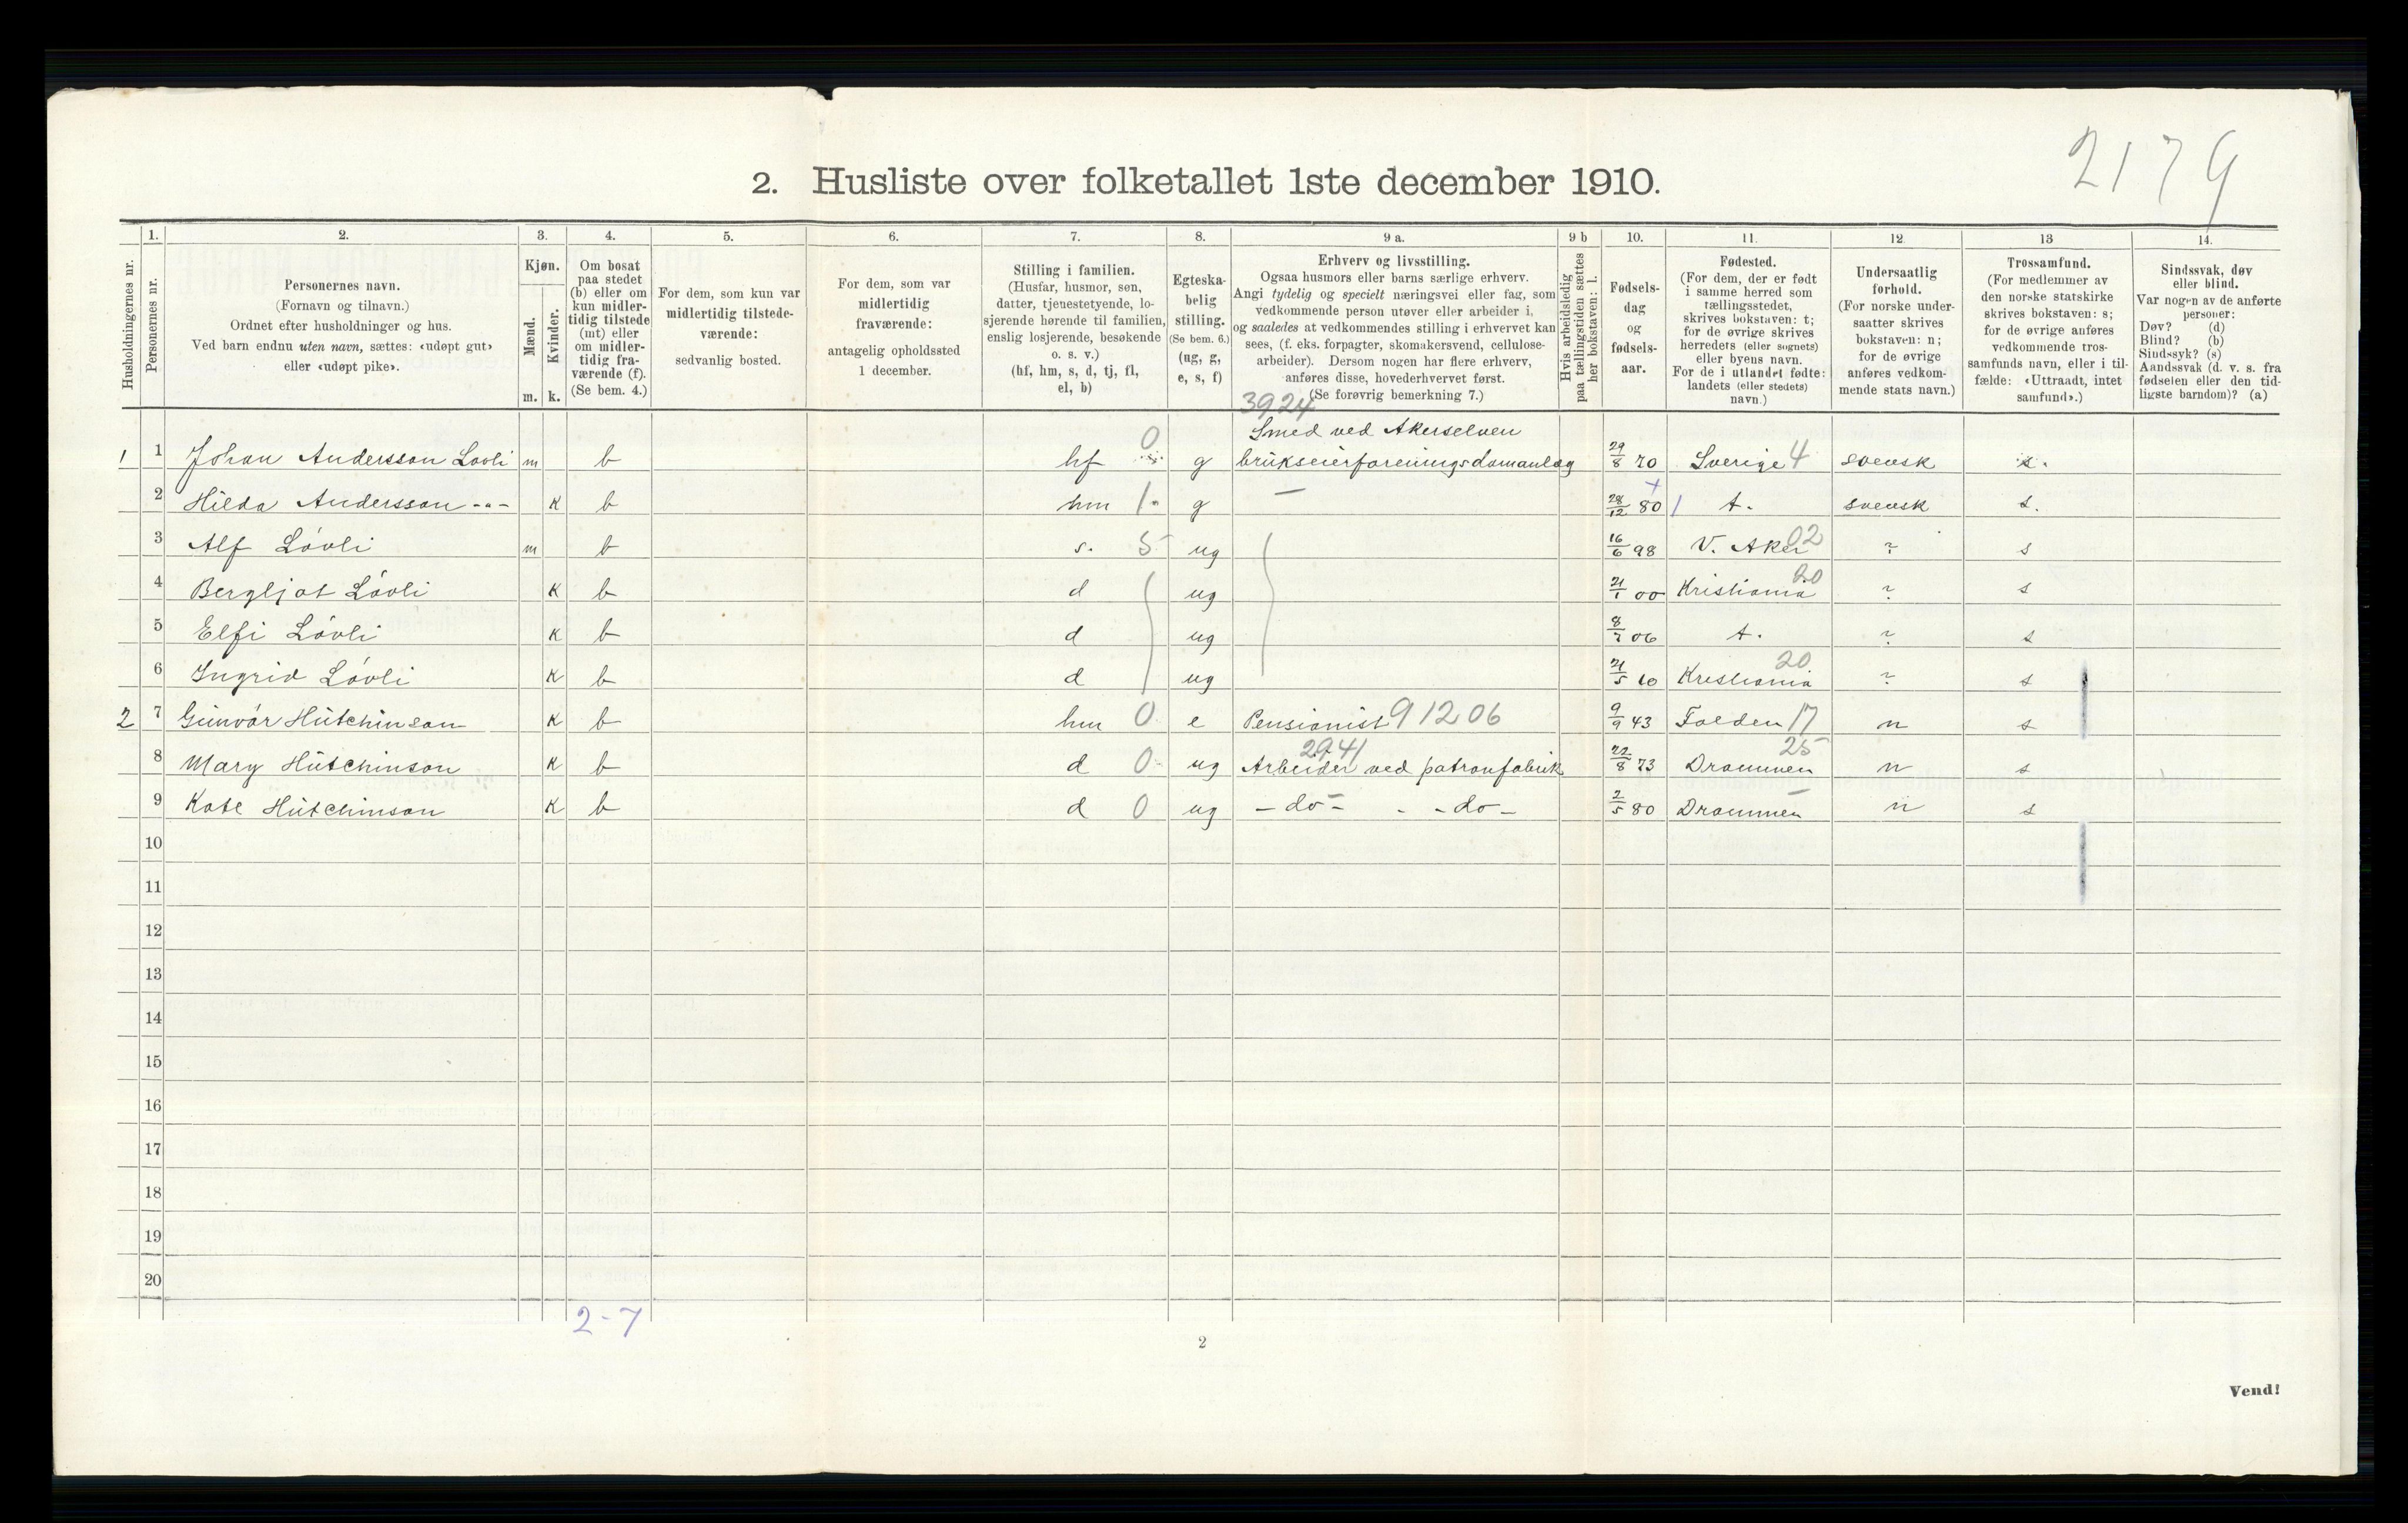 2179
2. Husliste over folketallet 1ste december 1910.
Husholdningernes nr.
1. Personernes nr.
2. Personernes navn.
(Fornavn og tilnavn.)
Ordnet efter husholdninger og hus.
Ved barn endnu uten navn, sættes: «udøpt gut»
eller «udøpt pike».
3. Kjøn.
Mænd. Kvinder.
m. k.
4. Om bosat
paa stedet
(b) eller om
kun midler-
tidig tilstede
(mt) eller
om midler-
tidig fra-
værende (f).
(Se bem. 4.)
5. For dem, som kun var
midlertidig tilstede-
værende:
sedvanlig bosted.
6. For dem, som var
midlertidig
fraværende:
antagelig opholdssted
1 december.
7. Stilling i familien.
(Husfar, husmor, søn,
datter, tjenestetyende, lo-
sjerende hørende til familien,
enslig losjerende, besøkende
o. s. v.)
(hf, hm, s, d, tj, fl,
el, b)
8. Egteska-
belig
stilling.
(Se bem. 6.)
(ug, g,
e, s, f)
9 a. Erhverv og livsstilling.
Ogsaa husmors eller barns særlige erhverv.
Angi tydelig og specielt næringsvei eller fag, som
vedkommende person utøver eller arbeider i,
og saaledes at vedkommendes stilling i erhvervet kan
sees, (f. eks. forpagter, skomakersvend, cellulose-
arbeider). Dersom nogen har flere erhverv,
anføres disse, hovederhvervet først.
(Se forøvrig bemerkning 7.)
9 b Hvis arbeidsledig
paa tællingstiden sættes
her bokstaven: l.
10. Fødsels-
dag
og
fødsels-
aar.
11. Fødested.
(For dem, der er født
i samme herred som
tællingsstedet,
skrives bokstaven: t;
for de øvrige skrives
herredets (eller sognets)
eller byens navn.
For de i utlandet fødte:
landets (eller stedets)
navn.)
12. Undersaatlig
forhold.
(For norske under-
saatter skrives
bokstaven: n;
for de øvrige
anføres vedkom-
mende stats navn.)
13 Trossamfund.
(For medlemmer av
den norske statskirke
skrives bokstaven: s;
for de øvrige anføres
vedkommende tros-
samfunds navn, eller i til-
fælde: «Uttraadt, intet
samfund».)
14. Sindssvak, døv
eller blind.
Var nogen av de anførte
personer:
Døv? (d)
Blind? (b)
Sindssyk? (s)
Aandssvak (d. v. s. fra
fødselen eller den tid-
ligste barndom)? (a)
3924
Smed ved Akerselven
1 1 Johan Andersson Lovli m b hf 0 g brukseierforeningsdamanlæg 29/8 70 Sverige 4 svensk s.
2 Hilda Andersson -"- k b hm 1. g — 28/12 80 t. svensk s.
3 Alf Lóvli m b s. 5 ug 16/6 98 V. Aker 02 ? s
4 Bergljot Lóvli k b d ug 21/1 00 Kristiania 20 ? s
5 Elfi Lóvli k b d ug 8/7 06 t. ? s
6 Ingrid Lóvli k b d ug 21/5 10 Kristiania 20 ? s
2 7 Gunvór Hutchinson k b hm 0 e Pensionist 91206 9/9 43 Folden 17 n s
8 Mary Hutchinson k b d 0 ug Arbeider ved patronfabrik 2941 22/8 73 Drammen 25 n s
9 Kate Hutchinson k b d 0 ug - do - - do - 2/5 80 Drammen n s
10
11
12
13
14
15
16
17
18
19
20
2-7
2
Vend!